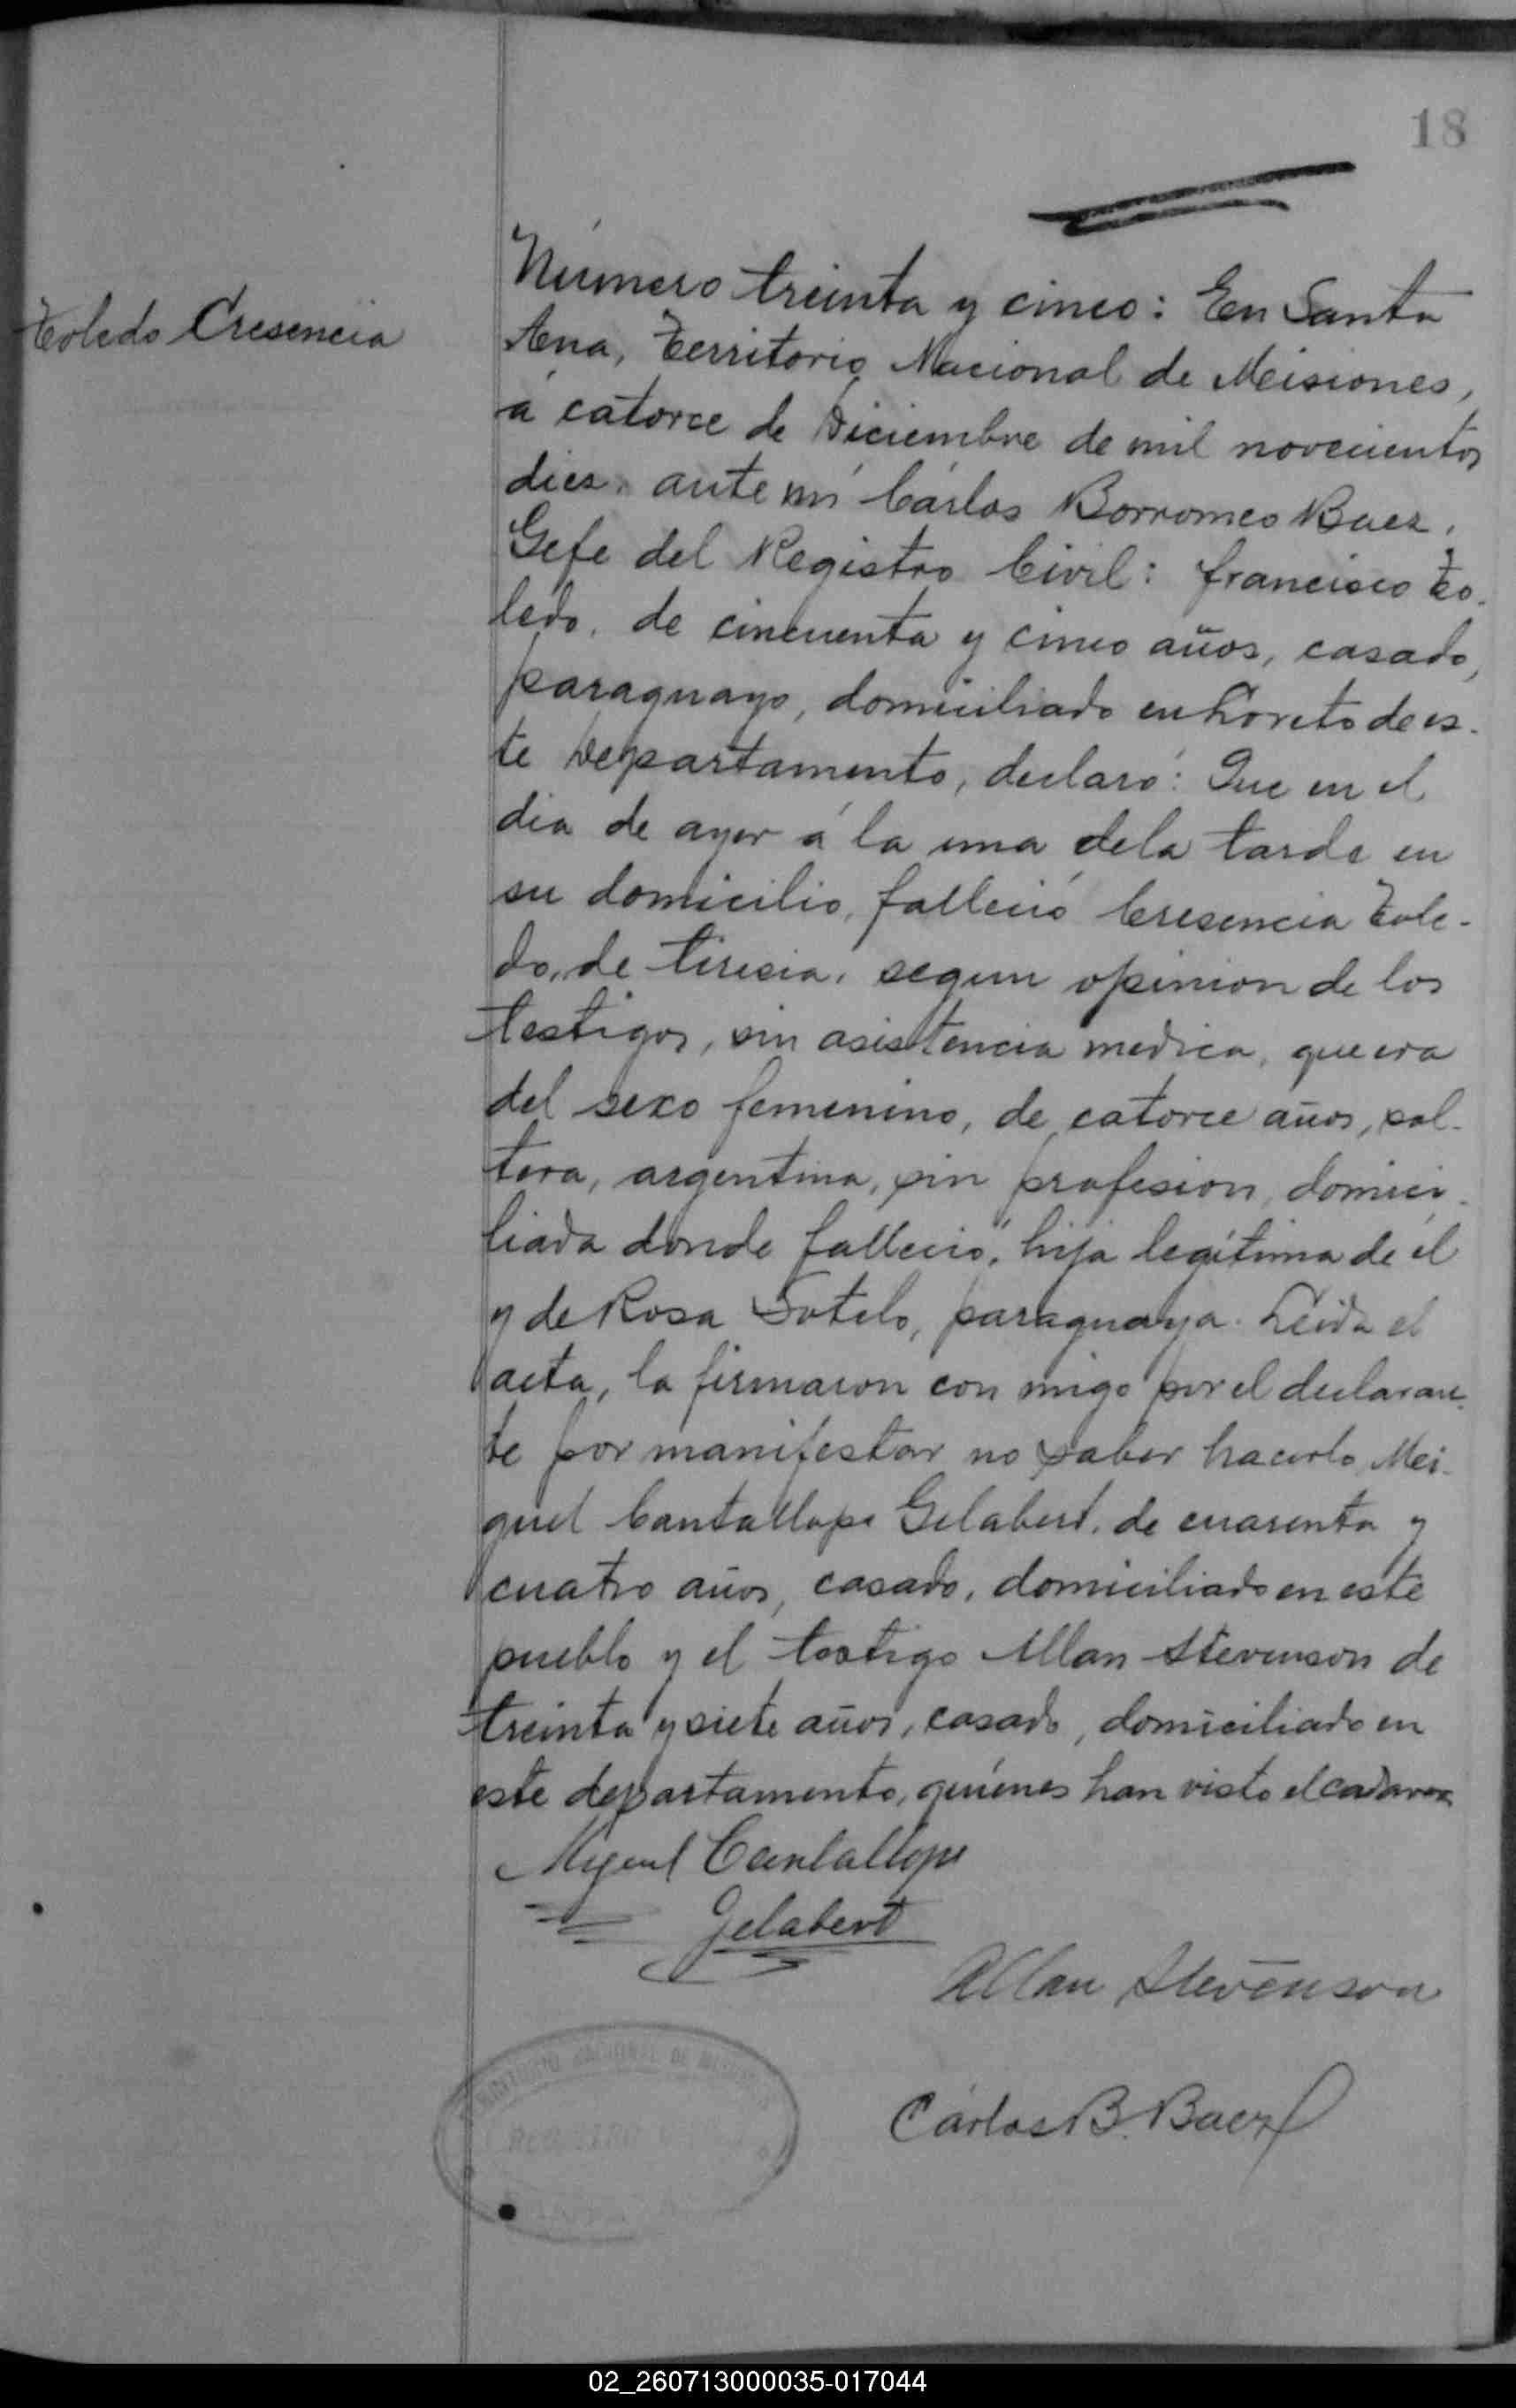 18
Toledo Cresencia
Número treinta y cinco: En Santa
Ana, Territorio Nacional de Misiones,
á catorce de Diciembre de mil novecientos
diez, ante mí Cárlos Borromeo Baez,
Gefe del Registro Civil: Francisco To-
ledo, de cincuenta y cinco años, casado,
paraguayo, domiciliado en Loreto de es-
te Departamento, declaró: Que en el
dia de ayer á la una de la tarde en
su domicilio, falleció Cresencia Tole-
do, de tiricia, segun opinion de los
testigos, sin asistencia medica, que era
del sexo femenino, de catorce años, sol-
tera, argentina, sin profesion, domici-
liada donde falleció, hija legítima de él
y de Rosa Sotelo, paraguaya. Leida el
acta, la firmaron con migo por el declaran-
te por manifestar no saber hacerlo Mi-
guel Cantallops Gelabert, de cuarenta y
cuatro años, casado, domiciliado en este
pueblo y el testigo Allan Stevenson de
treinta y siete años, casado, domiciliado en
este departamento, quiénes han visto el cadaver
Miguel Cantallops
Gelabert
Allan Stevenson
Cárlos B. Baez
TERRITORIO NACIONAL DE MISIONES
REGISTRO
02_260713000035-017044